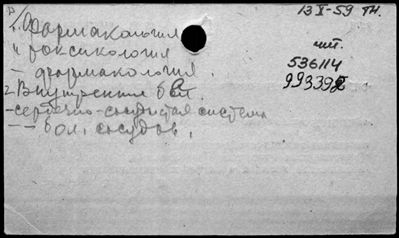 13 X-59 тн.
1. Фармакология
и токсикология
- фармакология.
чит.
536114
993392
2. Внутренние бол.
- сердечно-сосудистая система
- - бол. сосудов.